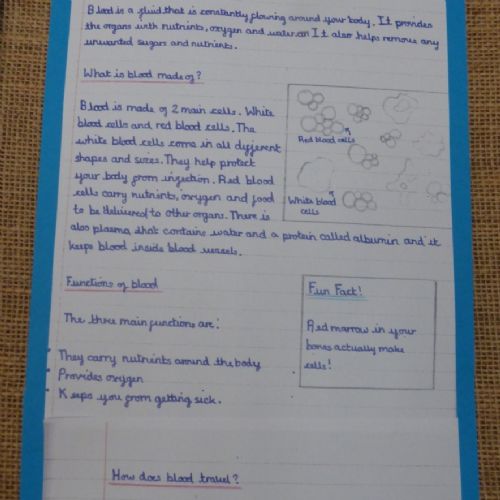 Blood is a fluid that is constantly flowing around your body. It provides
the organs with nutrients, oxygen and water. It also helps remove any
unwanted sugars and nutrients.
What is blood made of?
Blood is made of 2 main cells. White
blood cells and red blood cells. The
white blood cells come in all different
shapes and sizes. They help protect
your body from infection. Red blood
cells carry nutrients, oxygen and food
to be delivered to other organs. There is
also plasma that contains water and a protein called albumin and it
keeps blood inside blood vessels.
Red blood cells
White blood
cells
Functions of blood
The three main functions are:
• They carry nutrients around the body
• Provides oxygen
• Keeps you from getting sick.
Fun Fact!
Red marrow in your
bones actually make
cells!
How does blood travel?